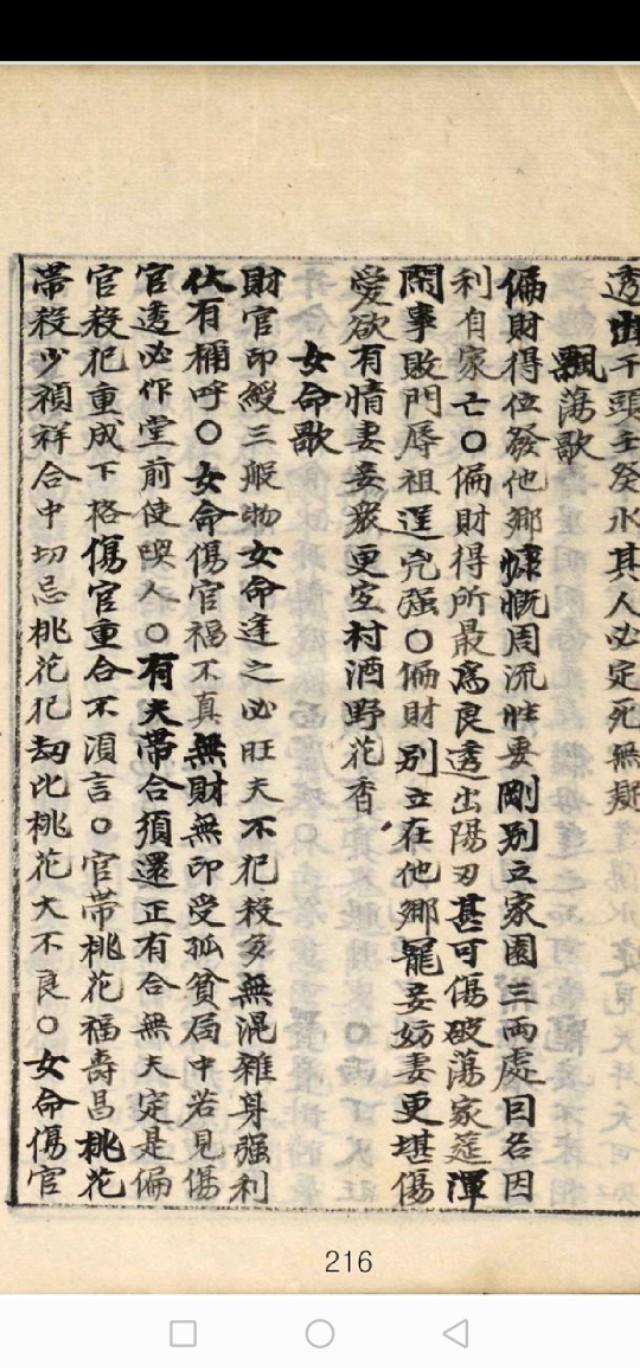 透出干頭壬癸水其人必定死無疑
飄蕩歌
偏財得位發他鄉慷慨周流性要剛別立家園三兩處因名因
利自家亡○偏財得所最為良透出陽刃甚可傷破蕩家筵渾
鬧事敗門辱祖逞兇强○偏財別立在他鄉寵妾妨妻更堪傷
愛欲有情妻妾衆更宜村酒野花香
女命歌
財官印綬三般物女命逢之必旺夫不犯殺多無混雜身强利
伏有稱呼○女命傷官福不真無財無印受孤貧局中若見傷
官透必作堂前使喚人○有夫帶合須還正有合無夫定是偏
官殺犯重成下格傷官重合不須言○官帶桃花福壽昌桃花
帶殺少禎祥合中切忌桃花犯劫比桃花大不良○女命傷官
216